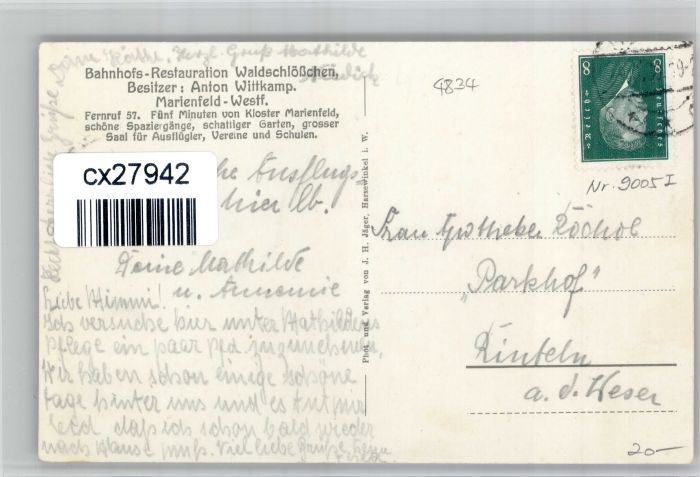 Herzl. Gruß Mathilde
Bahnhofs-Restauration Waldschlößchen,
Besitzer: Anton Wittkamp.
Marienfeld-Westf.
Fernruf 57. Fünf Minuten von Kloster Marienfeld,
schöne Spaziergänge, schattiger Garten, grosser
Saal für Ausflügler, Vereine und Schulen.
cx27942
Ausflugs
hier lb.
Deine Mathilde
u. Annemie
Liebe Mimmi!
Ich versuche hier unter Mathildens
Pflege ein paar Pfd zuzunehmen,
Wir haben schon einige schöne
Tage hinter uns und es tut mir
leid daß ich schon bald wieder
nach Hause muß. Viel liebe Grüße
Phot. und Verlag von J. H. Jäger, Harsewinkel i. W.
4834
8 8
Deutsches Reich
Nr. 9005 I
Frau Apotheker
"Parkhof"
Rinteln
a. d. Weser
20-